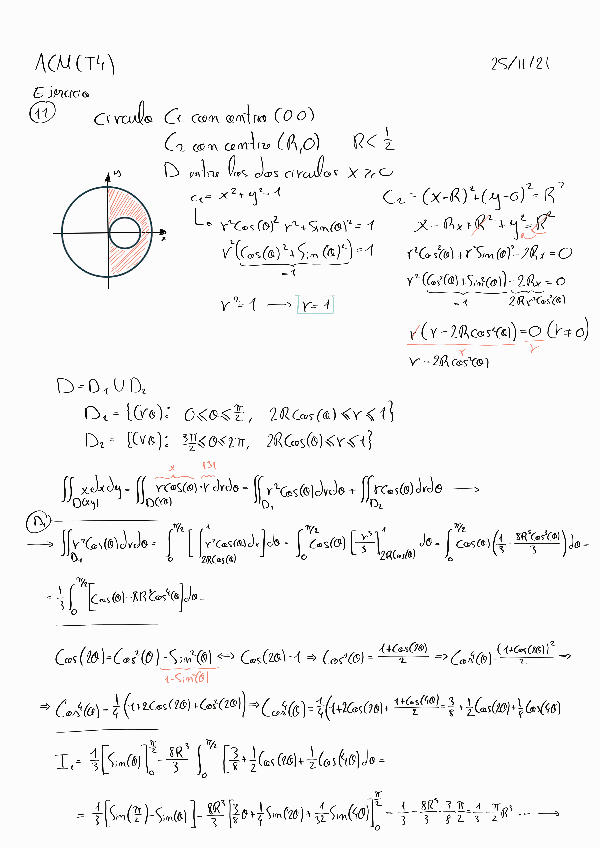 ACM(T4) 25/11/21
Ejercicio
11 circulo C₁ con centro (0 0)
C₂ con centro (R,0) R < 1/2
D entre los dos circulos x ≥ 0
y
x
C₁ = x² + y² = 1
C₂ = (x-R)² + (y-0)² = R²
r²Cos(θ)² r² + Sin(θ)² = 1
x - Rx + R² + y² = R²
r²(Cos(θ)² + Sin(θ)²) = 1
= 1
r²Cos²(θ) + r²Sin(θ)² - 2Rx = 0
r²(Cos²(θ) + Sin²(θ)) - 2Rx = 0
= 1 2R r Cos(θ)
r² = 1 → r = 1
r(r - 2RCos(θ)) = 0 (r ≠ 0)
r r
r - 2RCos(θ)
D = D₁ ∪ D₂
D₁ = {(rθ): 0 ≤ θ ≤ π/2, 2RCos(θ) ≤ r ≤ 1}
D₂ = {(rθ): 3π/2 ≤ θ ≤ 2π, 2RCos(θ) ≤ r ≤ 1}
x |J|
∬_D(xy) x dx dy = ∬_D(rθ) rCos(θ) · r dr dθ = ∬_D₁ r²Cos(θ) dr dθ + ∬_D₂ rCos(θ) dr dθ →
D₁
→ ∬_D₁ r²Cos(θ) dr dθ = ∫₀^{π/2} [∫_{2RCos(θ)}^1 r²Cos(θ) dr] dθ = ∫₀^{π/2} Cos(θ) [r³/3]_{2RCos(θ)}^1 dθ = ∫₀^{π/2} Cos(θ) (1/3 - 8R³Cos³(θ)/3) dθ =
= 1/3 ∫₀^{π/2} [Cos(θ) - 8R³Cos⁴(θ)] dθ =
Cos(2θ) = Cos²(θ) - Sin²(θ) ↔ Cos(2θ) - 1 ⇒ Cos²(θ) = (1+Cos(2θ))/2 ⇒ Cos⁴(θ) = (1+Cos(2θ))²/2 ⇒
1-Sin²(θ)
⇒ Cos⁴(θ) = 1/4 (1+2Cos(2θ) + Cos²(2θ)) ⇒ Cos⁴(θ) = 1/4 (1+2Cos(2θ) + (1+Cos(4θ))/2 = 3/8 + 1/2 Cos(2θ) + 1/8 Cos(4θ)
I₁ = 1/3 [Sin(θ)]₀^{π/2} - 8R³/3 ∫₀^{π/2} [3/8 + 1/2 Cos(2θ) + 1/2 Cos(4θ) dθ =
= 1/3 [Sin(π/2) - Sin(0)] - 8R³/3 [3/8 θ + 1/4 Sin(2θ) + 1/32 Sin(4θ)]₀^{π/2} = 1/3 - 8R³/3 · 3/8 · π/2 = 1/3 - π/2 R³ ... →